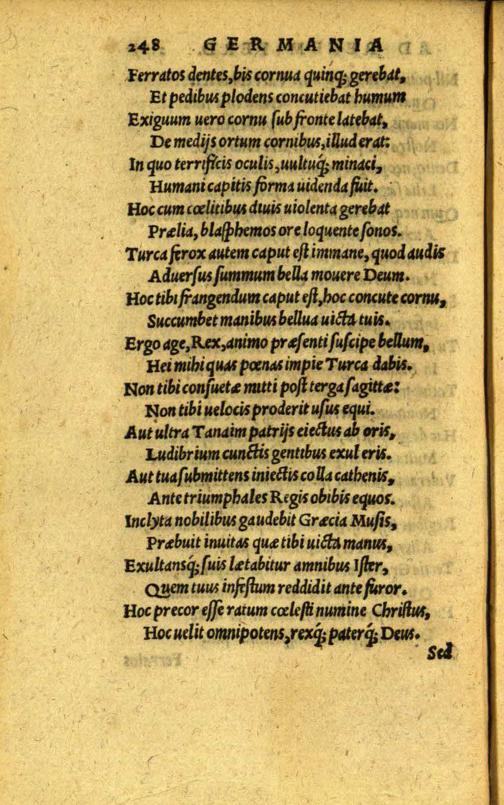 248 GERMANIA
Ferratos dentes, bis cornua quinq; gerebat,
Et pedibus plodens concutiebat humum
Exiguum uero cornu sub fronte latebat,
De medijs ortum cornibus, illud erat:
In quo terrificis oculis, uultuq; minaci,
Humani capitis forma uidenda fuit.
Hoc cum cœlitibus diuis uiolenta gerebat
Prælia, blasphemos ore loquente sonos.
Turca ferox autem caput est immane, quod audis
Aduersus summum bella mouere Deum.
Hoc tibi frangendum caput est, hoc concute cornu,
Succumbet manibus bellua uicta tuis.
Ergo age, Rex, animo præsenti suscipe bellum,
Hei mihi quas pœnas impie Turca dabis.
Non tibi consuetæ mitti post terga sagittæ:
Non tibi uelocis proderit usus equi.
Aut ultra Tanaim patrijs eiectus ab oris,
Ludibrium cunctis gentibus exul eris.
Aut tua submittens iniectis colla cathenis,
Ante triumphales Regis obibis equos.
Inclyta nobilibus gaudebit Græcia Musis,
Præbuit inuitas quæ tibi uicta manus,
Exultansq; suis lætabitur amnibus Ister,
Quem tuus infestum reddidit ante furor.
Hoc precor esse ratum cœlesti numine Christus,
Hoc uelit omnipotens, rexq; paterq; Deus.
Sed